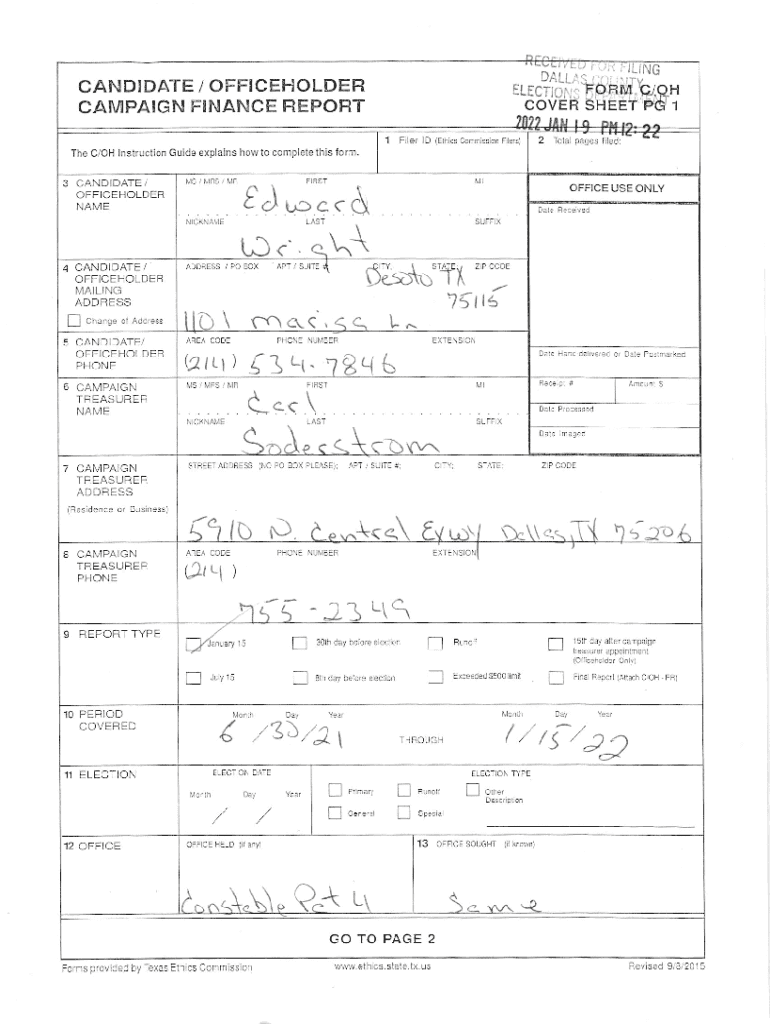 RECEIVED FOR FILING
DALLAS COUNTY
ELECTIONS DEPARTMENT
2022 JAN 19 PM 12: 22
CANDIDATE / OFFICEHOLDER
CAMPAIGN FINANCE REPORT
FORM C/OH
COVER SHEET PG 1
The C/OH Instruction Guide explains how to complete this form.
1 Filer ID (Ethics Commission Filers)
2 Total pages filed:
3 CANDIDATE / OFFICEHOLDER NAME
MS / MRS / MR FIRST MI
Edward
NICKNAME LAST SUFFIX
Wright
OFFICE USE ONLY
Date Received
4 CANDIDATE / OFFICEHOLDER MAILING ADDRESS
Change of Address
ADDRESS / PO BOX APT / SUITE # CITY; STATE; ZIP CODE
Desoto TX
75115
1101 Marissa Ln
5 CANDIDATE/ OFFICEHOLDER PHONE
AREA CODE PHONE NUMBER EXTENSION
(214) 534-7846
Date Hand-delivered or Date Postmarked
6 CAMPAIGN TREASURER NAME
MS / MRS / MR FIRST MI
Carl
NICKNAME LAST SUFFIX
Soderstrom
Receipt # Amount $
Date Processed
Date Imaged
7 CAMPAIGN TREASURER ADDRESS
(Residence or Business)
STREET ADDRESS (NO PO BOX PLEASE); APT / SUITE #; CITY; STATE; ZIP CODE
5910 N. Central Exwy Dallas, TX 75206
8 CAMPAIGN TREASURER PHONE
AREA CODE PHONE NUMBER EXTENSION
(214)
755-2349
9 REPORT TYPE
January 15
30th day before election
Runoff
15th day after campaign treasurer appointment (Officeholder Only)
July 15
8th day before election
Exceeded $500 limit
Final Report (Attach C/OH - FR)
10 PERIOD COVERED
Month Day Year
6 /30/21
THROUGH
Month Day Year
1/15/22
11 ELECTION
ELECTION DATE
Month Day Year
/ /
ELECTION TYPE
Primary
Runoff
Other
Description
General
Special
12 OFFICE
OFFICE HELD (if any)
Constable Pct 4
13 OFFICE SOUGHT (if known)
Same
GO TO PAGE 2
Forms provided by Texas Ethics Commission
www.ethics.state.tx.us
Revised 9/8/2015